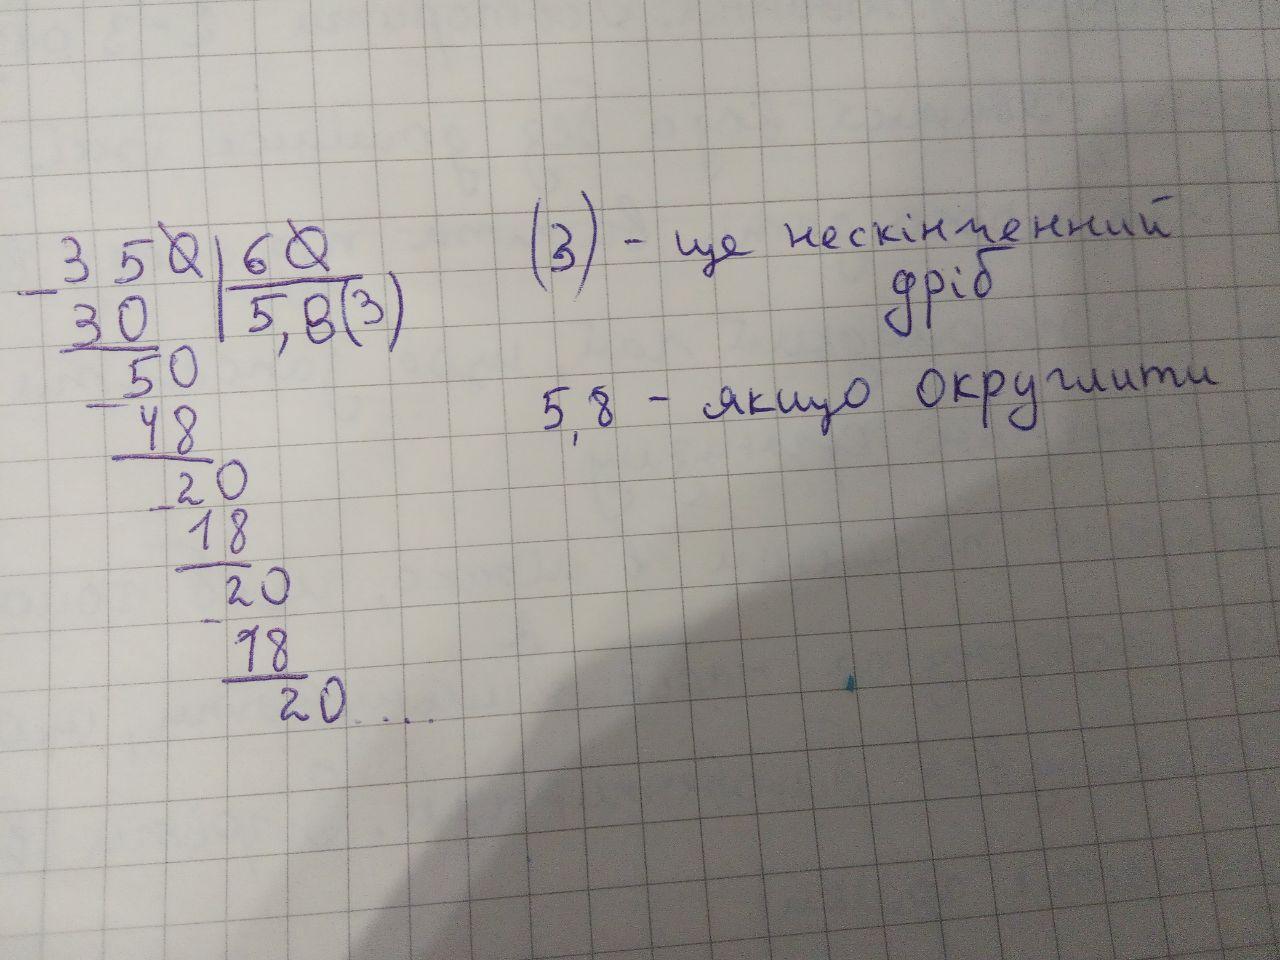 350 | 60
30 | 5,8(3)
50
48
20
18
20
18
20....
(3) - це нескінченний
дріб
5,8 - якщо округлити